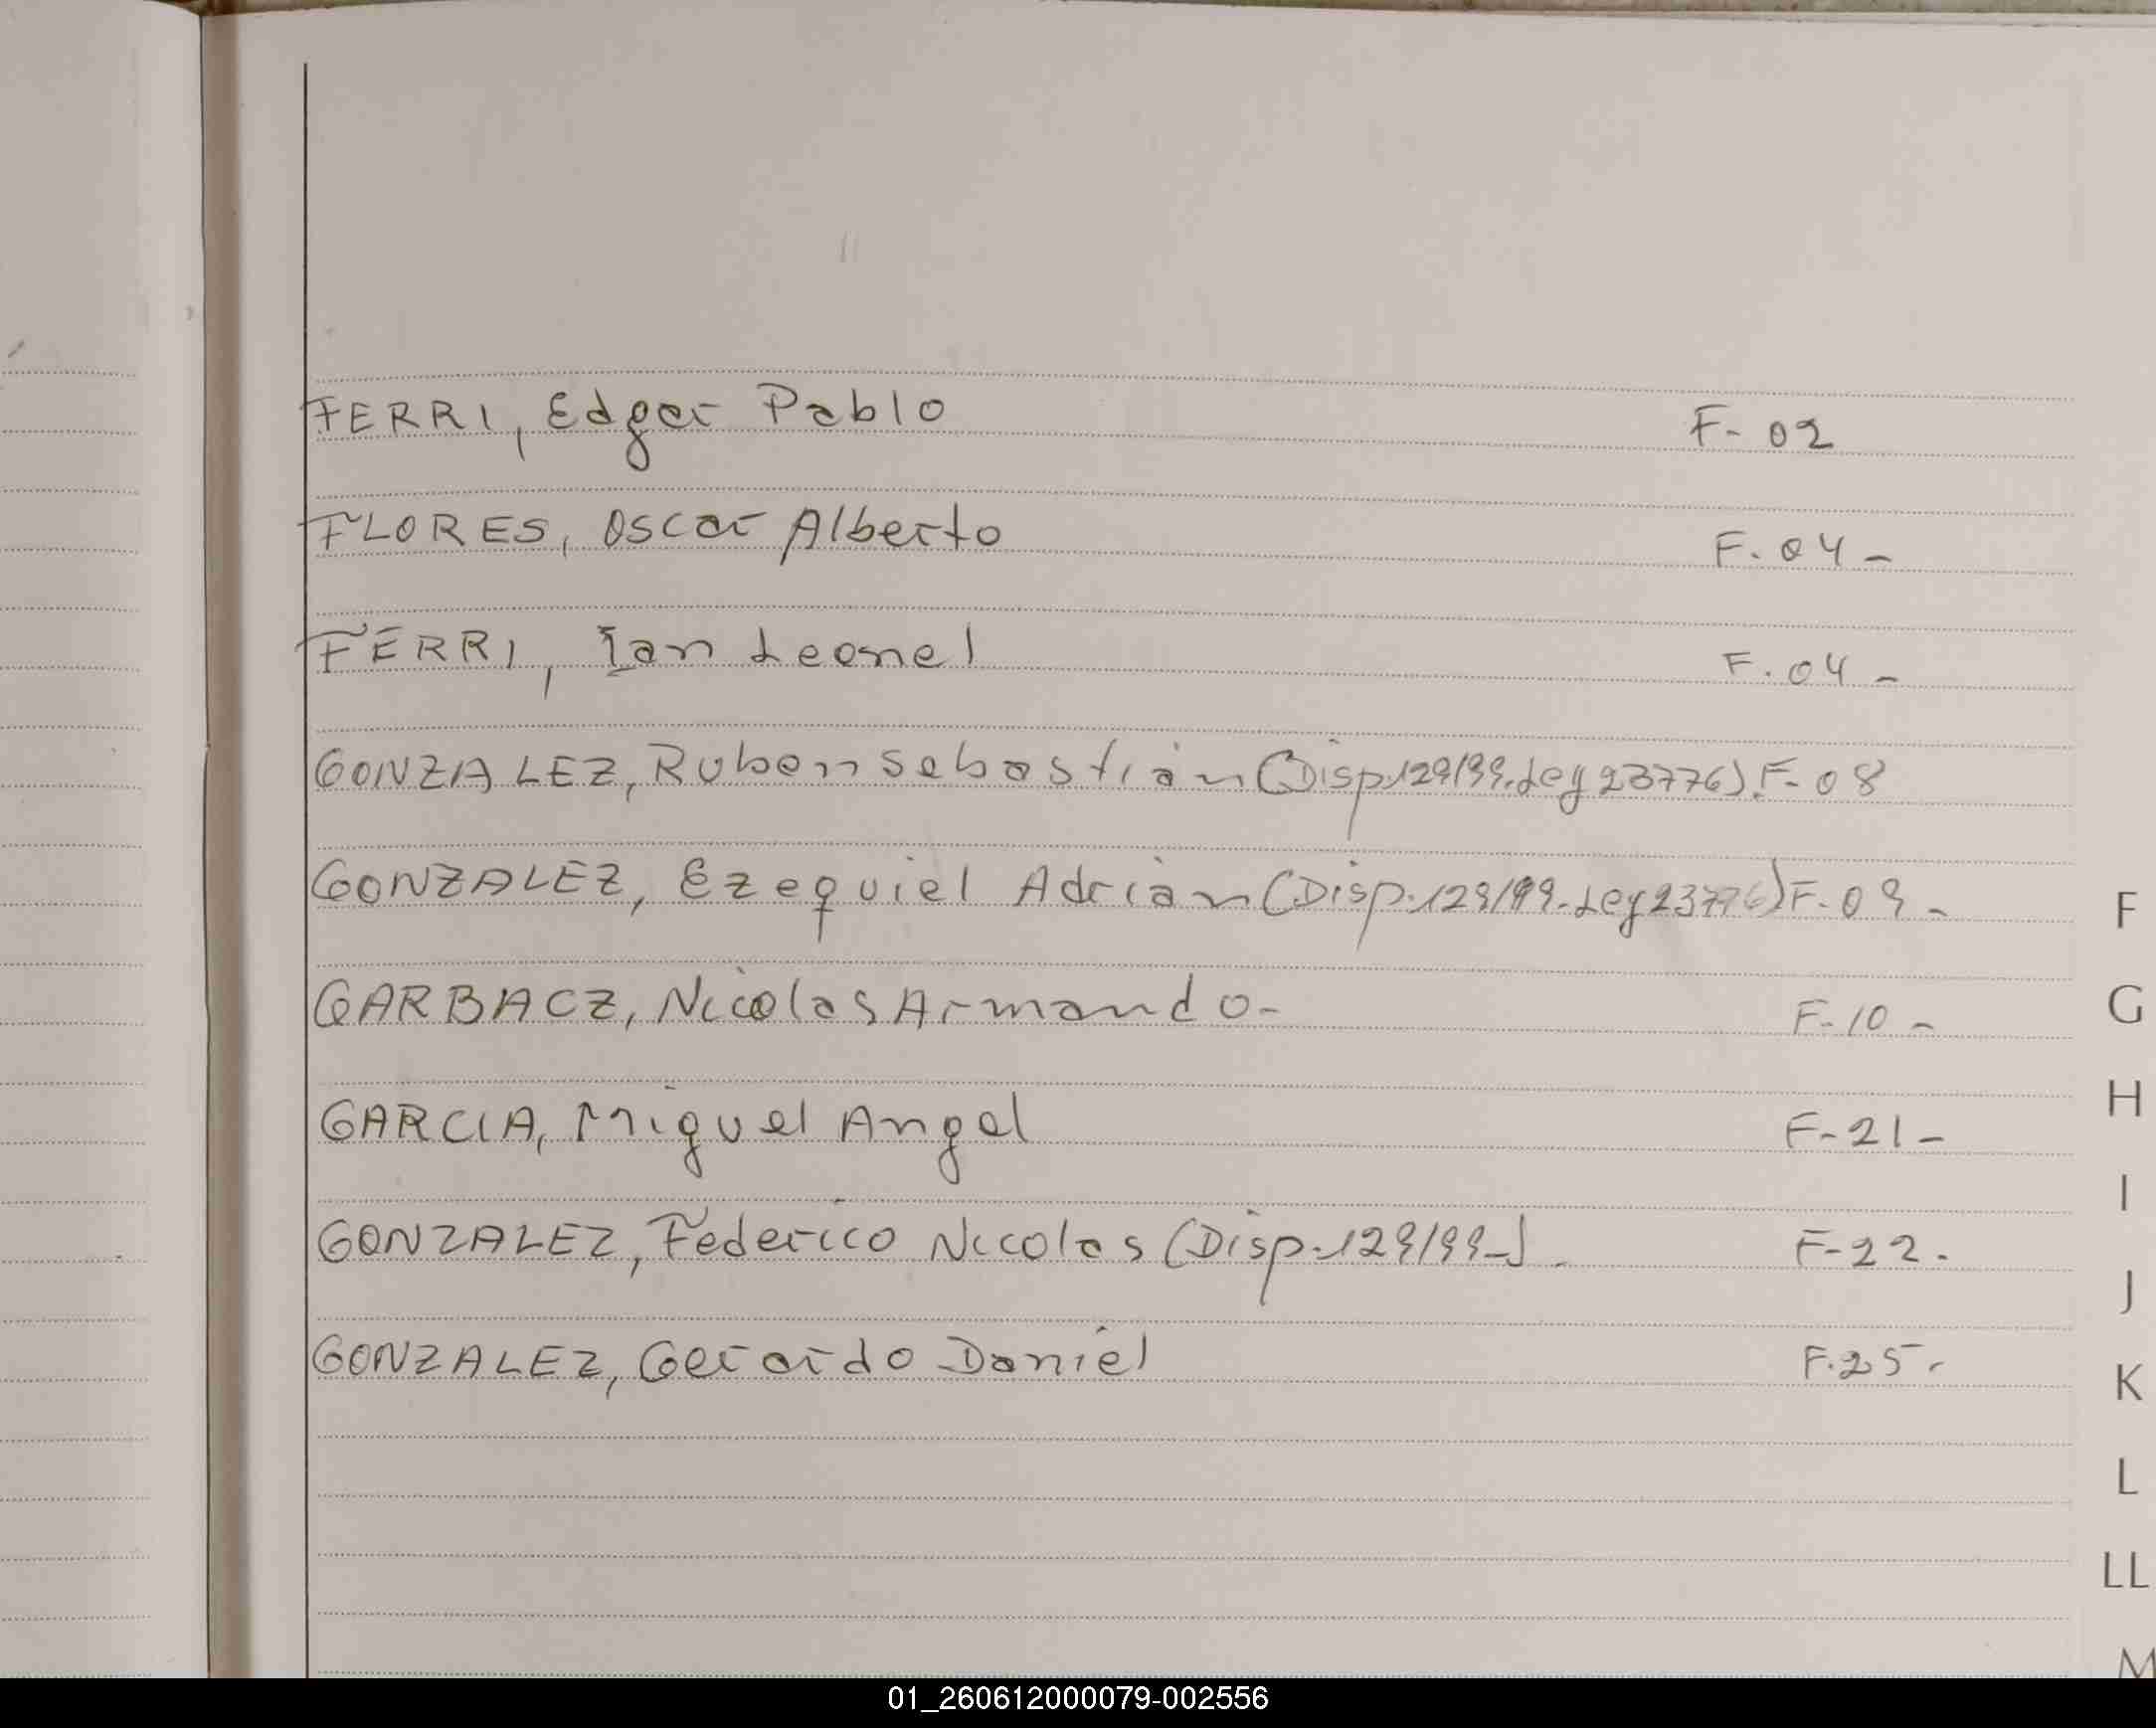 FERRI, Edgar Pablo F- 02
FLORES, Oscar Alberto F. 04 -
FERRI, Ian Leonel F. 04 -
GONZALEZ, Ruben Sebastián (Disp.129/99.Ley 23776) F- 08
GONZALEZ, Ezequiel Adrián (Disp.129/99-Ley 23776) F- 09 -
GARBACZ, Nicolas Armando- F-10 -
GARCIA, Miguel Angel F-21-
GONZALEZ, Federico Nicolas (Disp.129/99-). F-22.
GONZALEZ, Gerardo Daniel F.25-
F
G
H
I
J
K
L
LL
M
01_260612000079-002556